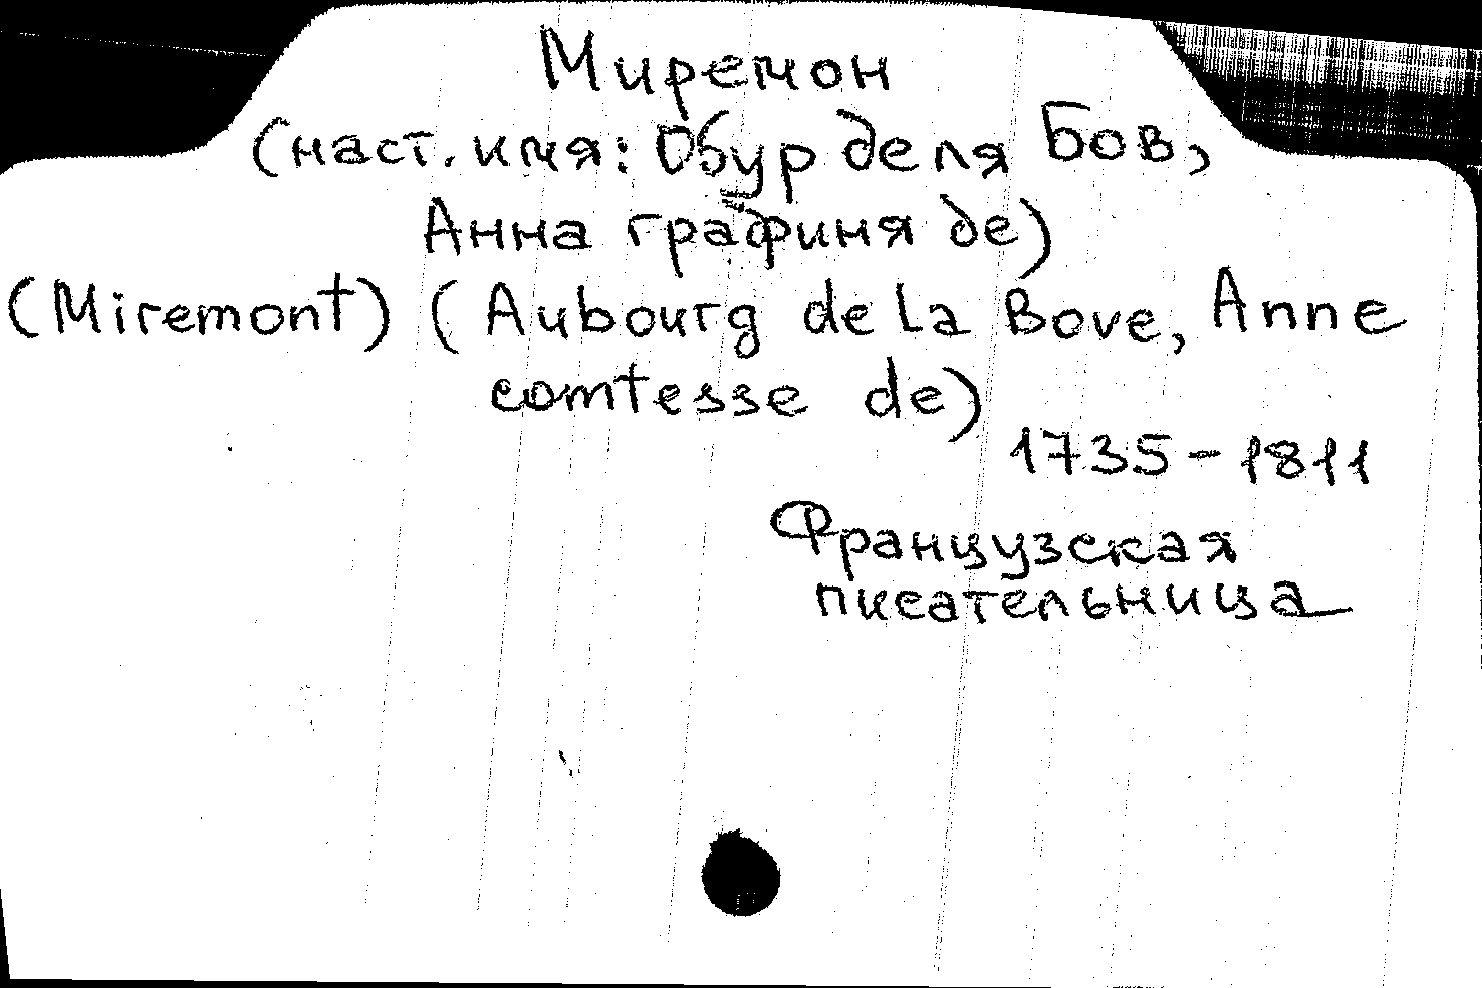 Миремон
(наст. имя: Обур де ля Бов,
Анна графиня де)
(Miremont) (Aubourg de la Bove, Anne
comtesse de)
1735-1811
Французская
писательница